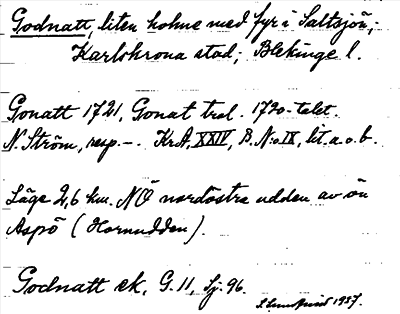 Godnatt, liten holme med fyr i Saltsjön;
Karlskrona stad; Blekinge l.
Gonatt 1721, Gonat trol. 1720-talet.
N. Ström, resp. -. Kr.A. XXIV, B. N:o IX, lit. a. o. b.
Läge 2,6 km. NÖ nordöstra udden av ön
Aspö (Hornudden).
Godnatt ek. G. 11, Sj. 96.
S. Lundquist 1937.